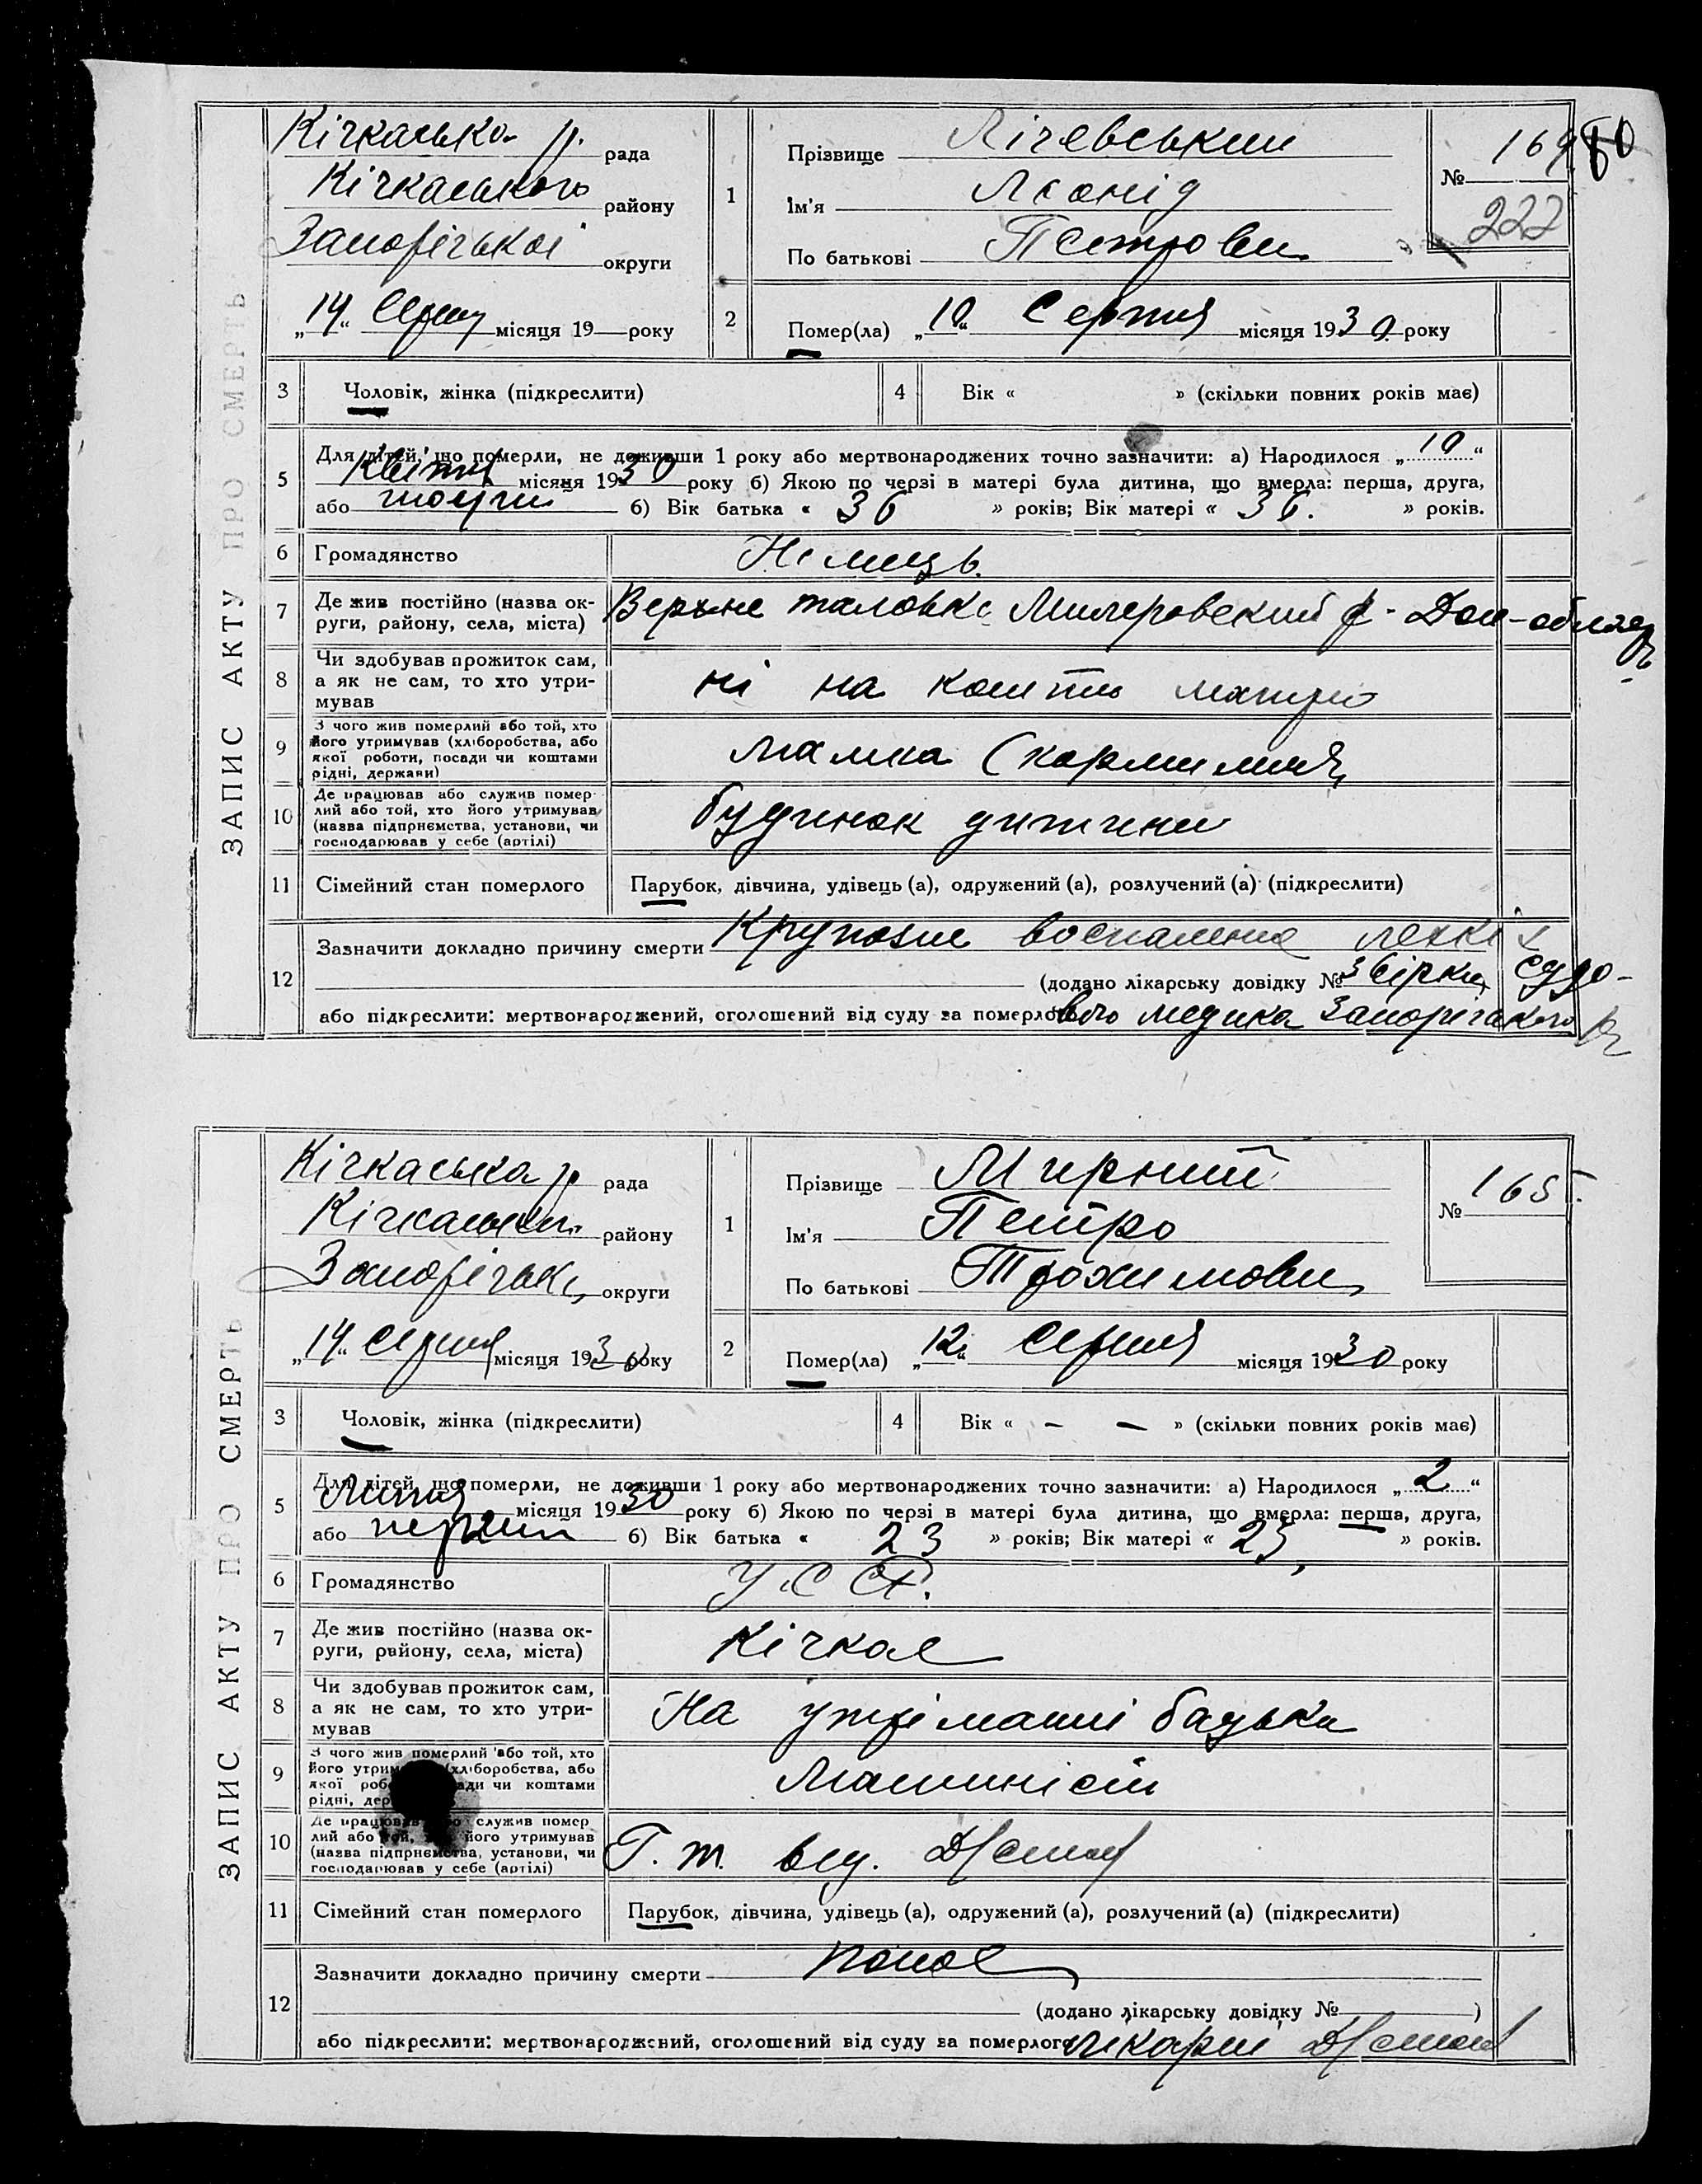 ЗАПИС АКТУ ПРО СМЕРТЬ
Кічкаська р. рада
Кічкаського району
Запорізької округи
„14“ Серпня місяця 19 року
1
Прізвище Лічевський
Ім'я Леонід
По батькові Петрович
№ 169
80
222
2
Помер(ла) „10“ Серпня місяця 1930 року
3 Чоловік, жінка (підкреслити)
4 Вік « » (скільки повних років має)
5 Для дітей, що померли, не доживши 1 року або мертвонароджених точно зазначити: а) Народилося „10“
Квітня місяця 1930 року б) Якою по черзі в матері була дитина, що вмерла: перша, друга,
або б) Вік батька « 36 » років; Вік матері « 36. » років.
6 Громадянство Німець.
7 Де жив постійно (назва ок-
руги, району, села, міста) Верхне таловка Милеровский р- Дон-область
8 Чи здобував прожиток сам,
а як не сам, то хто утри-
мував
ні на кошти матери
9 З чого жив померлий або той, хто
його утримував (хліборобства, або
якої роботи, посади чи коштами
рідні, держави)
мамка (кормилиця)
10 Де працював або служив помер-
лий або той, хто його утримував
(назва підприємства, установи, чи
господарював у себе (артілі)
будинок дитини
11 Сімейний стан померлого Парубок, дівчина, удівець (а), одружений (а), розлучений (а) (підкреслити)
12 Зазначити докладно причину смерти Крупозне воспаление легких
(додано лікарську довідку № судо-
або підкреслити: мертвонароджений, оголошений від суду за померлого медика Запорізького
ЗАПИС АКТУ ПРО СМЕРТЬ
Кічкаська р. рада
Кічкаськ. району
Запорізьк. округи
„14“ Серпня місяця 1930 року
1
Прізвище Мирний
Ім'я Петро
По батькові Трохимович
№ 165.
2
Помер(ла) „12“ Серпня місяця 1930 року
3 Чоловік, жінка (підкреслити)
4 Вік « – – » (скільки повних років має)
5 Для дітей, що померли, не доживши 1 року або мертвонароджених точно зазначити: а) Народилося „2“
Липня місяця 1930 року б) Якою по черзі в матері була дитина, що вмерла: перша, друга,
або б) Вік батька « 23 » років; Вік матері « 23, » років.
6 Громадянство У.С.С.Р.
7 Де жив постійно (назва ок-
руги, району, села, міста) Кічкас
8 Чи здобував прожиток сам,
а як не сам, то хто утри-
мував
На утріманні батька
9 З чого жив померлий або той, хто
його утримував (хліборобства, або
якої роботи, посади чи коштами
рідні, держави)
Машиніст
10 Де працював або служив помер
лий або той, хто його утримував
(назва підприємства, установи, чи
господарював у себе (артілі)
Г. т.
11 Сімейний стан померлого Парубок, дівчина, удівець (а), одружений (а), розлучений (а) (підкреслити)
12 Зазначити докладно причину смерти понос
(додано лікарську довідку № )
або підкреслити: мертвонароджений, оголошений від суду за померлого лікарні